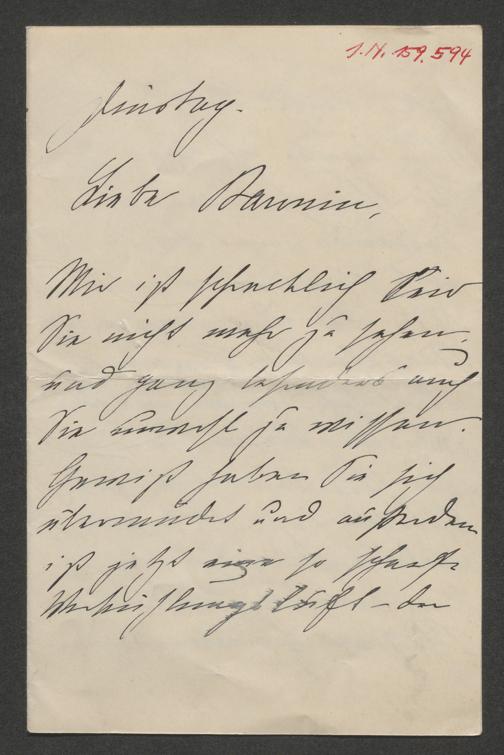 I.N. 159.594
Dinstag.
Liebe Baronin,
Mir ist schrecklich leid
Sie nicht mehr zu sehen,
und ganz besonders auch
Sie unwohl zu wissen.
Gewiß haben Sie sich
übermüdet und außerdem
ist jetzt eine so scharfe
luft – der